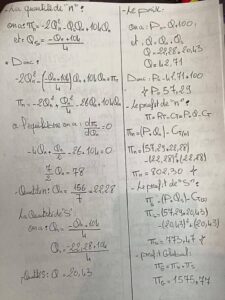 - La Quantité de "n":
on a: πn = -2Qn² - Qs.Qn + 104Qn
et: Qs = (-Qn + 104)/4
• Donc:
-2Qn² - (-Qn+104)/4 .Qn + 104Qn = πn
πn = -2Qn² + Qn²/4 - 26Qn + 104Qn
à l'équilibre on a: dπn/dQn = 0
-4Qn + Qn/2 - 26 + 104 = 0
7/2 Qn = 78
- Quantité n: Qn = 156/7 = 22,28
La Quantité de "S":
on a: Qs = (-Qn + 104)/4
Qs = (-22,28 + 104)/4
Quantité S: Qs = 20,43
- Le prix:
on a: P = - Q + 100
et: Q = Qn + Qs
Q = 22,28 + 20,43
Q = 42,71
Donc: P = - 42,71 + 100
P = 57,29
- Le profit de "n":
π = RT - CT = P.Q - CT
πn = (P.Qn) - CT(n)
πn = (57,29 × 22,28)
- (22,28)² + (22,28)
πn = 802,30
- Le profit de "S":
π = (P.Qs) - CT(s)
πs = (57,29 × 20,43)
- (20,43)² + (20,43)
πs = 773,47
- profit Global:
πG = πn + πs
πG = 1575,77